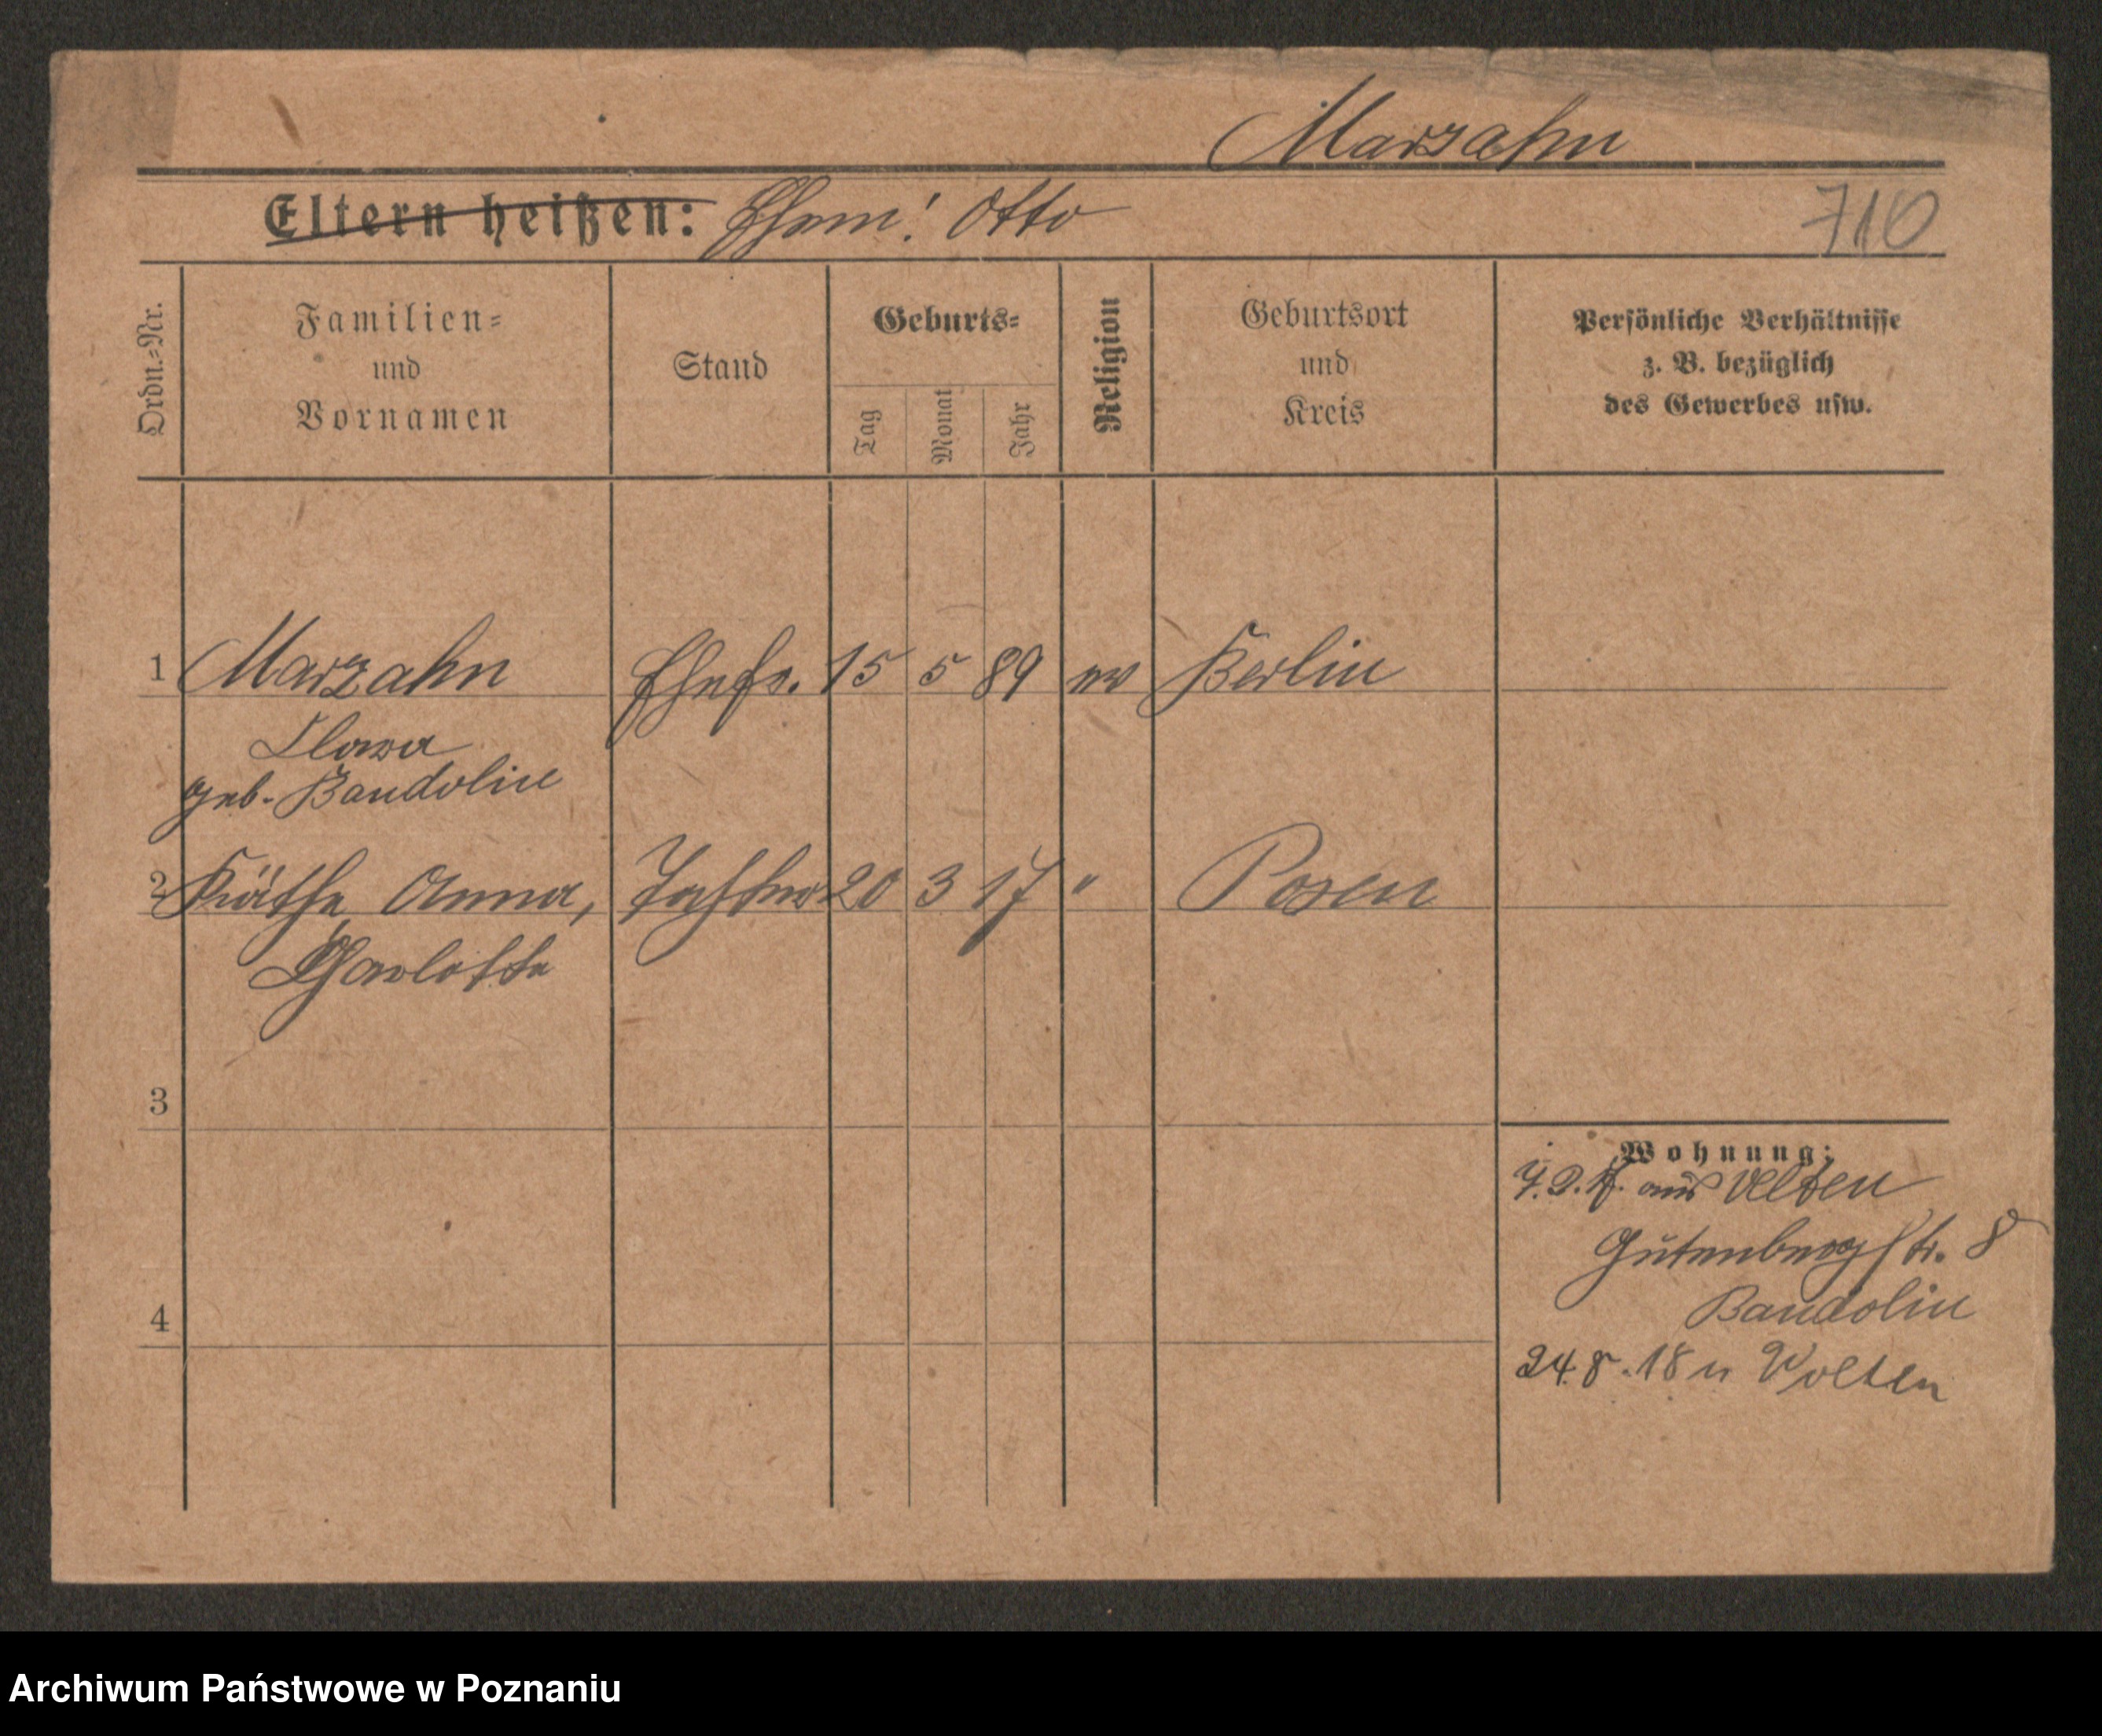 Marzahn
Eltern heißen: Ehem: Otto
710
Ordn.-Nr.
Familien-
und
Vornamen
Stand
Geburts-
Tag
Monat
Jahr
Religion
Geburtsort
und
Kreis
Persönliche Verhältnisse
z. B. bezüglich
des Gewerbes usw.
1 Marzahn Ehefr. 15 5 89 ev Berlin
Clara
geb. Bandolin
2 Käthe Anna, Tochter 20 3 17 " Posen
Charlotte
3
Wohnung:
aus Velten
Gutenbergstr. 8
Bandolin
4
24.8.18 n Velten
Archiwum Państwowe w Poznaniu